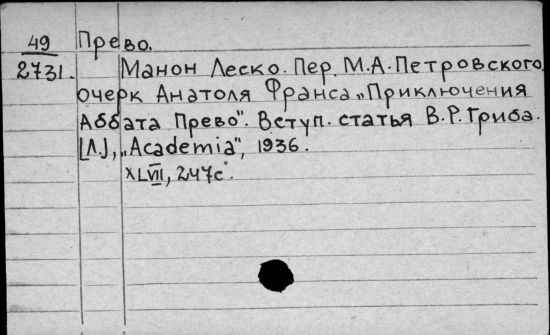 49 Прево.
2731. Манон Леско. Пер. М.А. Петровского,
очерк Анатоля Франса „Приключения
Аббата Прево". Вступ. статья В.Р. Гриба.
[Л.], „Academia", 1936.
XLVII, 247с.